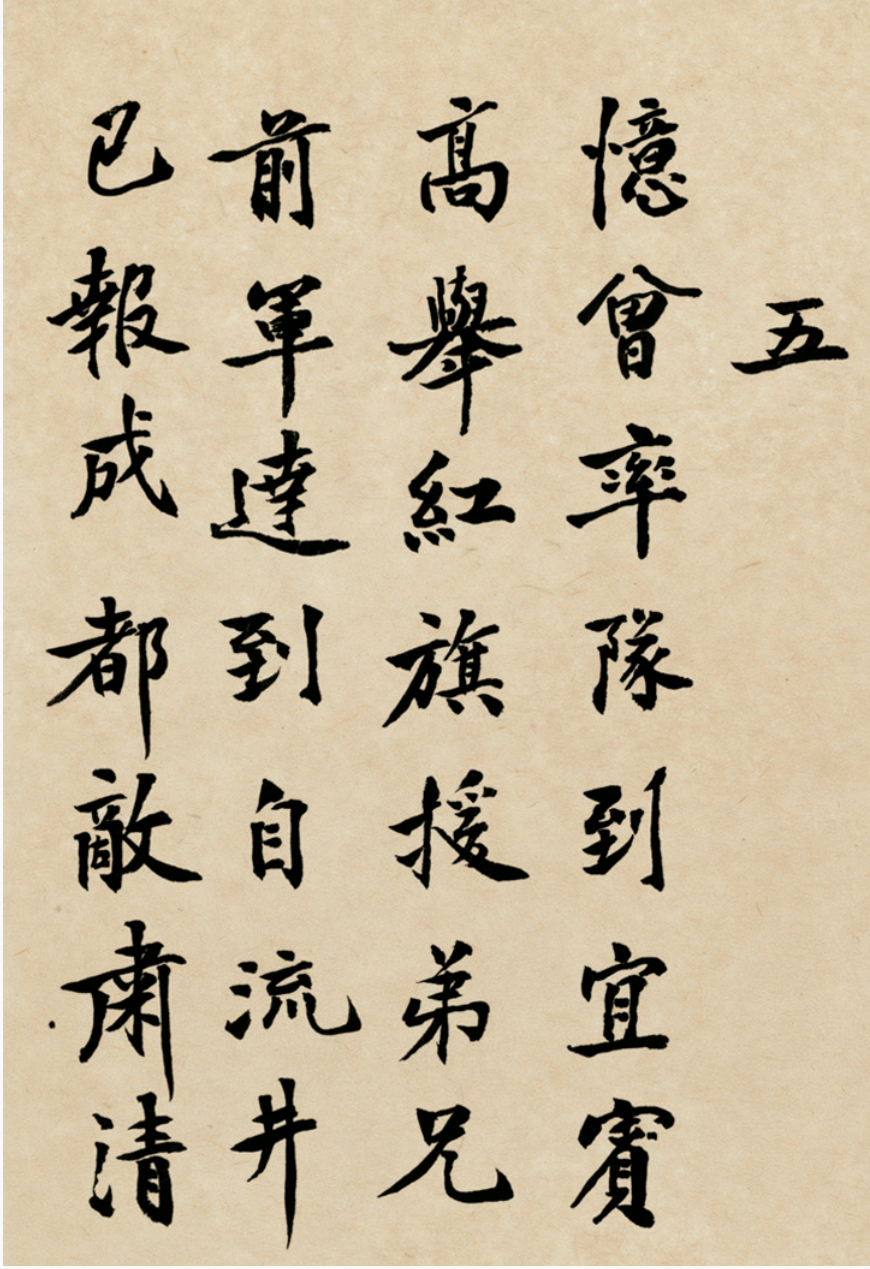 五
憶曾率隊到宜賓
高舉紅旗援弟兄
前軍達到自流井
已報成都敵肅清